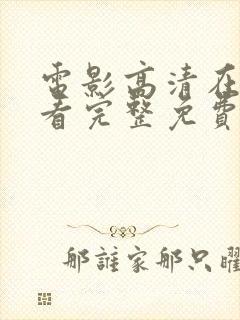 電影高清在
看完整免費
那誰家那只曜